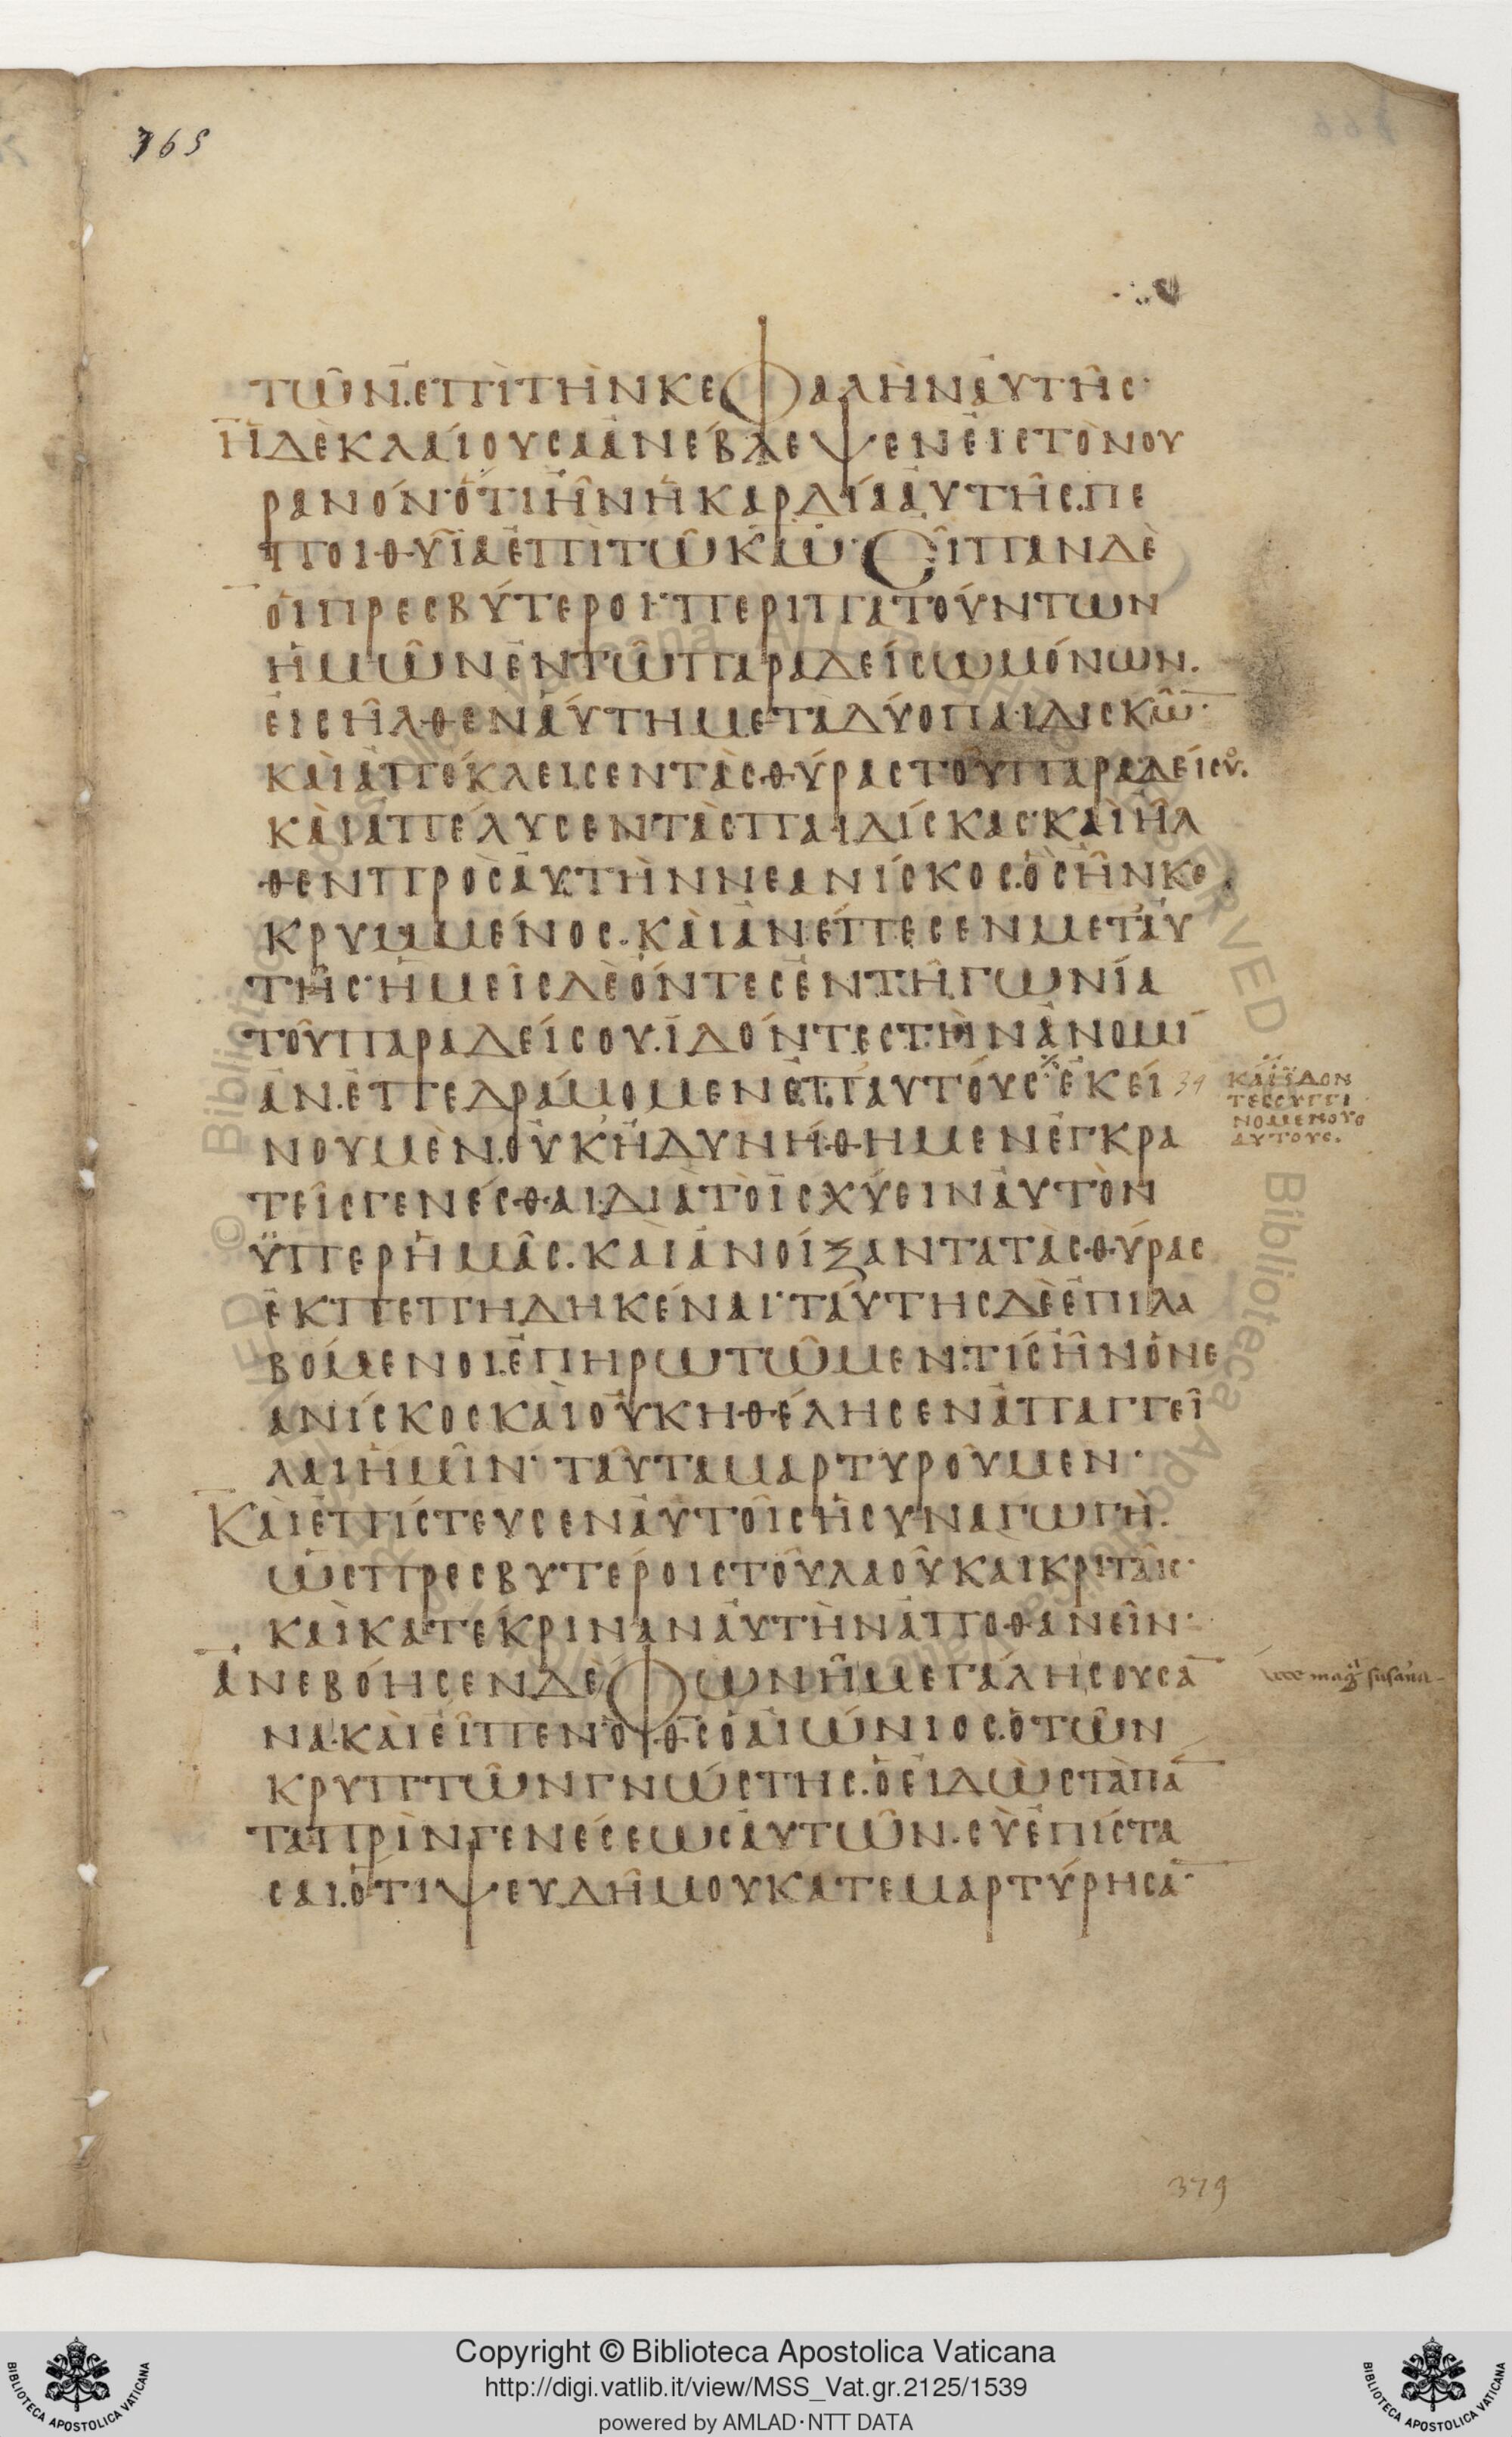 365
τῶν. ἐπὶ τὴν κεφαλὴν αὐτῆς·
Ἡ δὲ κλαίουσα ἀνέβλεψεν εἰς τὸν οὐ
ρανόν· ὅτι ἦν ἡ καρδία αὐτῆς. πε
ποιθυῖα ἐπὶ τῶ κ̅ω̅· Εἶπαν δὲ
οἱ πρεσβύτεροι· περιπατούντων
ἡμῶν ἐν τῶ παραδείσω μόνων.
εἰσῆλθεν αὕτη μετὰ δύο παιδισκῶ̅·
καὶ ἀπέκλεισεν τὰς θύρας τοῦ παραδείσου.
καὶ ἀπέλυσεν τὰς παιδίσκας· καὶ ἦλ
θεν πρὸς αὐτὴν νεανίσκος. ὃς ἦν κε
κρυμμένος. καὶ ἀνέπεσεν μετ' αὐ
τῆς· ἡμεῖς δὲ ὄντες ἐν τῆ γωνία
τοῦ παραδείσου. ἰδόντες τὴν ἀνομί
αν. ἐπεδράμομεν ἐπ' αὐτούς ※ ἐκεί
νου μὲν. οὐκ ἠδυνήθημεν ἐγκρα
τεῖς γενέσθαι. διὰ τὸ ἰσχύειν αὐτὸν
ϋπερ ἡμᾶς. καὶ ἀνοίξαντα τὰς θύρας
ἐκπεπηδηκέναι· ταύτης δὲ ἐπιλα
βόμενοι. ἐπηρωτῶμεν. τίς ἦν ὁ νε
ανίσκος καὶ οὐκ ἠθέλησεν ἀπαγγεῖ
λαι ἡμῖν· ταῦτα μαρτυροῦμεν·
Καὶ ἐπίστευσεν αὐτοῖς ἡ συναγωγὴ.
ὡς πρεσβυτέροις τοῦ λαοῦ καὶ κριταῖς·
καὶ κατέκριναν αὐτὴν ἀποθανεῖν·
ἀνεβόησεν δὲ φωνῆ μεγάλη σουσα̅
να· καὶ εἶπεν· ὁ θ̅ς̅ ὁ αἰώνιος. ὁ τῶν
κρυπτῶν γνώστης. ὁ εἰδὼς τὰ πα̅
τα πρὶν γενέσεως αὐτῶν. σὺ ἐπίστα
σαι. ὅτι ψευδῆ μου κατεμαρτύρησα̅·
34
καὶ ἰδον
τες συγγι
νομενους
αυτους.
379
Copyright © Biblioteca Apostolica Vaticana
http://digi.vatlib.it/view/MSS_Vat.gr.2125/1539
powered by AMLAD·NTT DATA
BIBLIOTECA APOSTOLICA VATICANA
BIBLIOTECA APOSTOLICA VATICANA